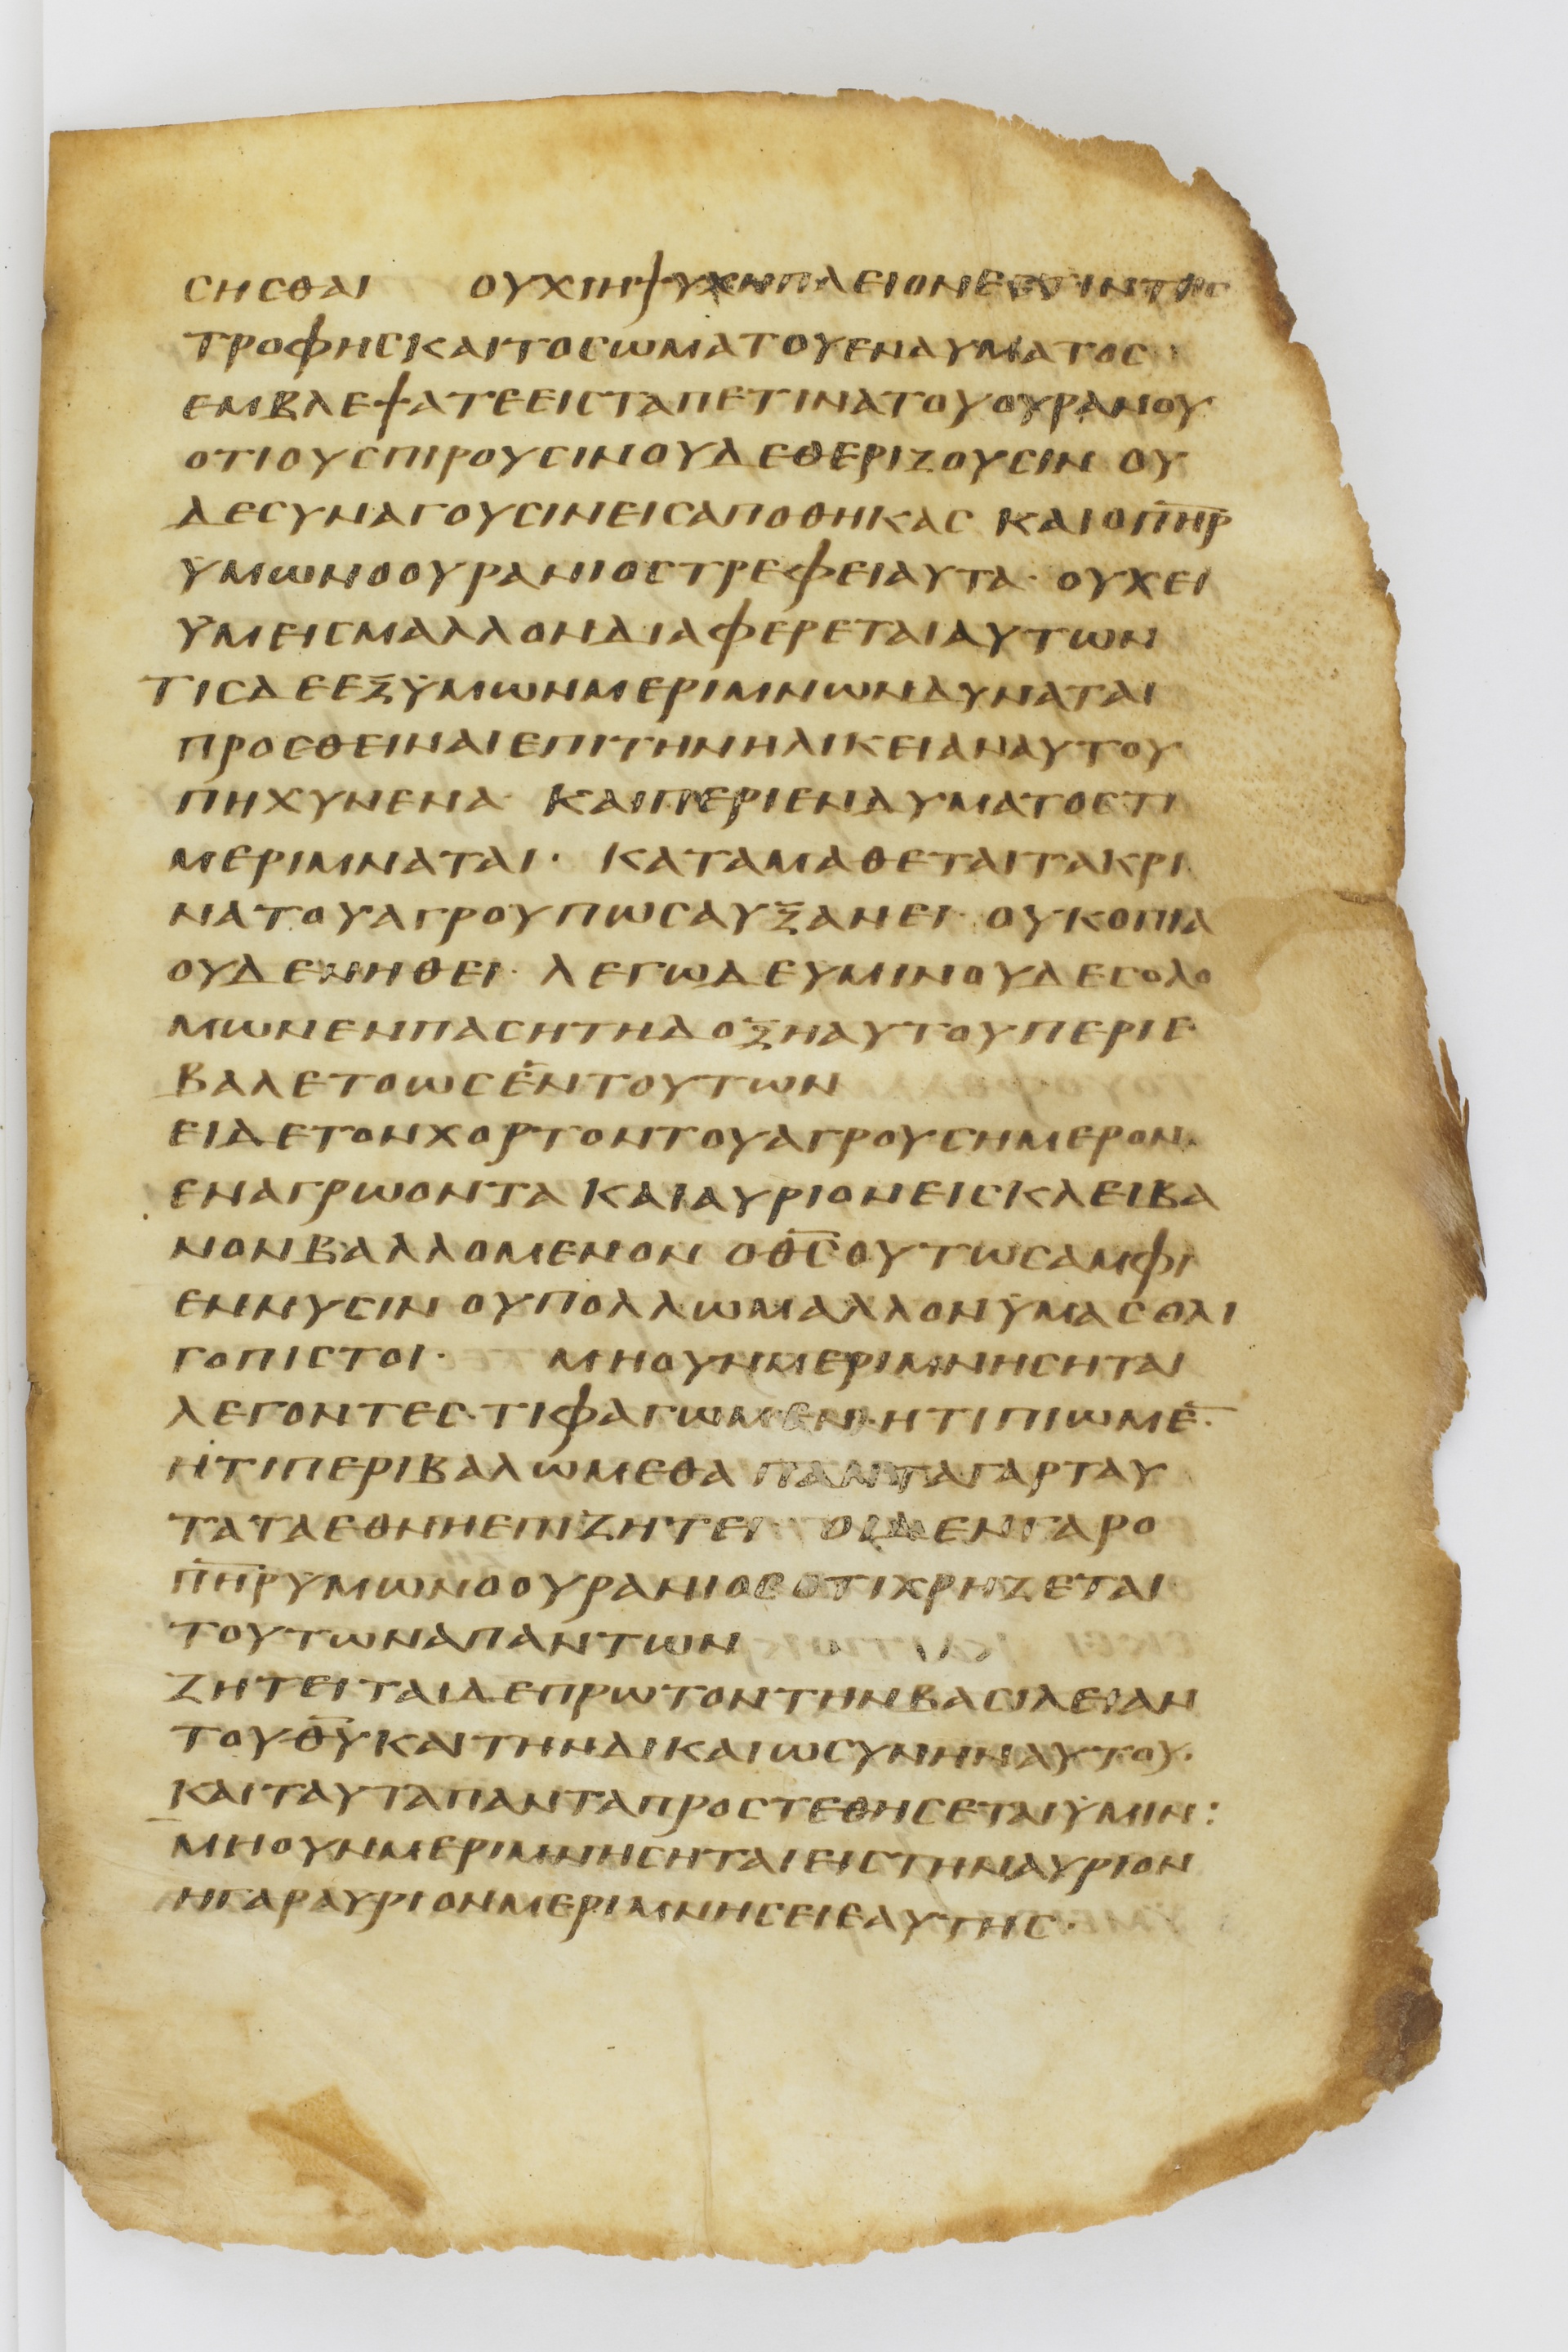 ϹΗϹΘΑΙ ΟΥΧΙΗΨΥΧΗΠΛΕΙΟΝΕϹΤΙΝΤΗϹ
ΤΡΟΦΗϹΚΑΙΤΟϹΩΜΑΤΟΥΕΝΔΥΜΑΤΟϹ
ΕΜΒΛΕΨΑΤΕΕΙϹΤΑΠΕΤΙΝΑΤΟΥΟΥΡΑΝΟΥ
ΟΤΙΟΥϹΠΙΡΟΥϹΙΝΟΥΔΕΘΕΡΙΖΟΥϹΙΝ ΟΥ
ΔΕϹΥΝΑΓΟΥϹΙΝΕΙϹΑΠΟΘΗΚΑϹ ΚΑΙΟΠ̅Η̅Ρ̅
ΫΜΩΝΟΟΥΡΑΝΙΟϹΤΡΕΦΕΙΑΥΤΑ· ΟΥΧΕΙ
ΫΜΕΙϹΜΑΛΛΟΝΔΙΑΦΕΡΕΤΑΙΑΥΤΩΝ
ΤΙϹΔΕΕΞΫΜΩΝΜΕΡΙΜΝΩΝΔΥΝΑΤΑΙ
ΠΡΟϹΘΕΙΝΑΙΕΠΙΤΗΝΗΛΙΚΕΙΑΝΑΥΤΟΥ
ΠΗΧΥΝΕΝΑ· ΚΑΙΠΕΡΙΕΝΔΥΜΑΤΟϹΤΙ
ΜΕΡΙΜΝΑΤΑΙ· ΚΑΤΑΜΑΘΕΤΑΙΤΑΚΡΙ
ΝΑΤΟΥΑΓΡΟΥΠΩϹΑΥΞΑΝΕΙ· ΟΥΚΟΠΙΑ
ΟΥΔΕΝΗΘΕΙ· ΛΕΓΩΔΕΥΜΙΝΟΥΔΕϹΟΛΟ
ΜΩΝΕΝΠΑϹΗΤΗΔΟΞΗΑΥΤΟΥΠΕΡΙΕ
ΒΑΛΕΤΟΩϹΕΝΤΟΥΤΩΝ
ΕΙΔΕΤΟΝΧΟΡΤΟΝΤΟΥΑΓΡΟΥϹΗΜΕΡΟΝ
ΕΝΑΓΡΩΟΝΤΑ ΚΑΙΑΥΡΙΟΝΕΙϹΚΛΕΙΒΑ
ΝΟΝΒΑΛΛΟΜΕΝΟΝ ΟΘ̅Ϲ̅ΟΥΤΩϹΑΜΦΙ
ΕΝΝΥϹΙΝ ΟΥΠΟΛΛΩΜΑΛΛΟΝΫΜΑϹΟΛΙ
ΓΟΠΙϹΤΟΙ· ΜΗΟΥΝΜΕΡΙΜΝΗϹΗΤΑΙ
ΛΕΓΟΝΤΕϹ·ΤΙΦΑΓΩΜΕΝ·ΗΤΙΠΙΩΜΕ̅·
ΗΤΙΠΕΡΙΒΑΛΩΜΕΘΑ ΠΑΝΤΑΓΑΡΤΑΥ
ΤΑΤΑΕΘΝΗΕΠΙΖΗΤΕΙ ΟΙΔΕΝΓΑΡΟ
Π̅Η̅Ρ̅ΥΜΩΝΟΟΥΡΑΝΙΟϹΟΤΙΧΡΗΖΕΤΑΙ
ΤΟΥΤΩΝΑΠΑΝΤΩΝ
ΖΗΤΕΙΤΑΙΔΕΠΡΩΤΟΝΤΗΝΒΑϹΙΛΕΙΑΝ
ΤΟΥΘ̅Υ̅ΚΑΙΤΗΝΔΙΚΑΙΩϹΥΝΗΝΑΥΤΟΥ·
ΚΑΙΤΑΥΤΑΠΑΝΤΑΠΡΟϹΤΕΘΗϹΕΤΑΙΫΜΙΝ:
ΜΗΟΥΝΜΕΡΙΜΝΗϹΗΤΑΙΕΙϹΤΗΝΑΥΡΙΟΝ
ΗΓΑΡΑΥΡΙΟΝΜΕΡΙΜΝΗϹΕΙΕΑΥΤΗϹ·